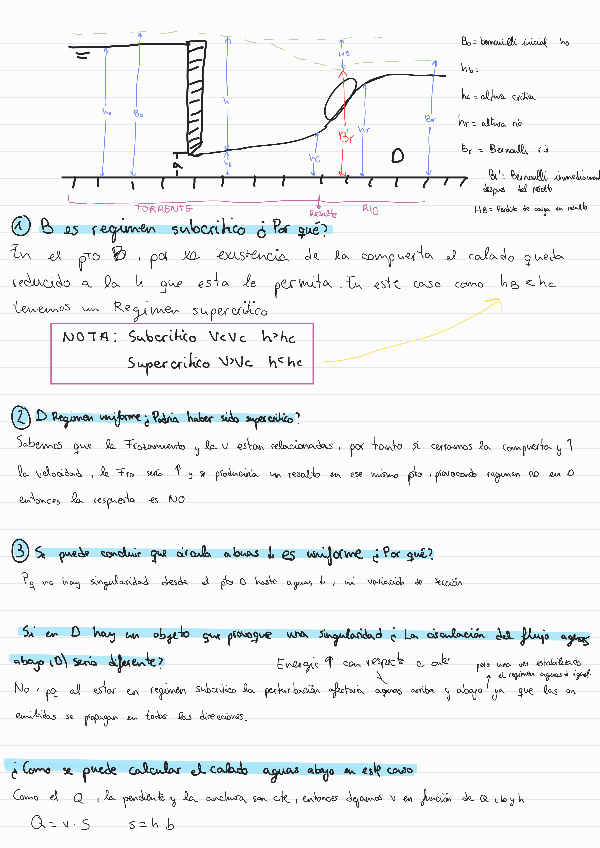 Bo = bernouilli inicial ho
hb =
hc = altura critica
hr = altura rio
Br = Bernoulli rio
Br' = Bernoulli inmediatament
despues del resalto
HB = Perdida de carga en resalto
HB
ho
Bo
h
hc
Br'
hr
Br
D
TORRENTE
Resalto
RIO
1 B es regimen subcritico ¿Por qué?
En el pto B, por la existencia de la compuerta el calado queda
reducido a la h que esta le permita. En este caso como hB < hc
tenemos un Regimen supercritico
NOTA: Subcritico V<Vc h>hc
Supercritico V>Vc h<hc
2 D Regimen uniforme ¿Podria haber sido supercritico?
Sabemos que la Frozamiento y la v estan relacionadas, por tanto si cerramos la compuerta y ↑
la velocidad, la Fro seria ↑ y se produciria un resalto en ese mismo pto, provocando regimen no en D
entonces la respuesta es NO
3 Se puede concluir que circula aguas ↓ es uniforme ¿Por qué?
Pq no hay singularidad desde el pto D hasta aguas ↓, ni variación de sección
Si en D hay un objeto que provoque una singularidad ¿La circulación del flujo aguas
abajo (D) seria diferente?
Energie ↑ con respecte a ante
pero una vez estabilizado
↑ el regimen aguas ↓ igual.
No, pq al estar en regimen subcritico la perturbación afectaria aguas arriba y abajo ya que las on
emitidas se propagan en todas las direcciones.
¿Como se puede calcular el calado aguas abajo en este caso
Como el Q, la pendiente y la anchura son cte, entonces dejamos v en función de Q, b y h
Q = v · S s = h · b